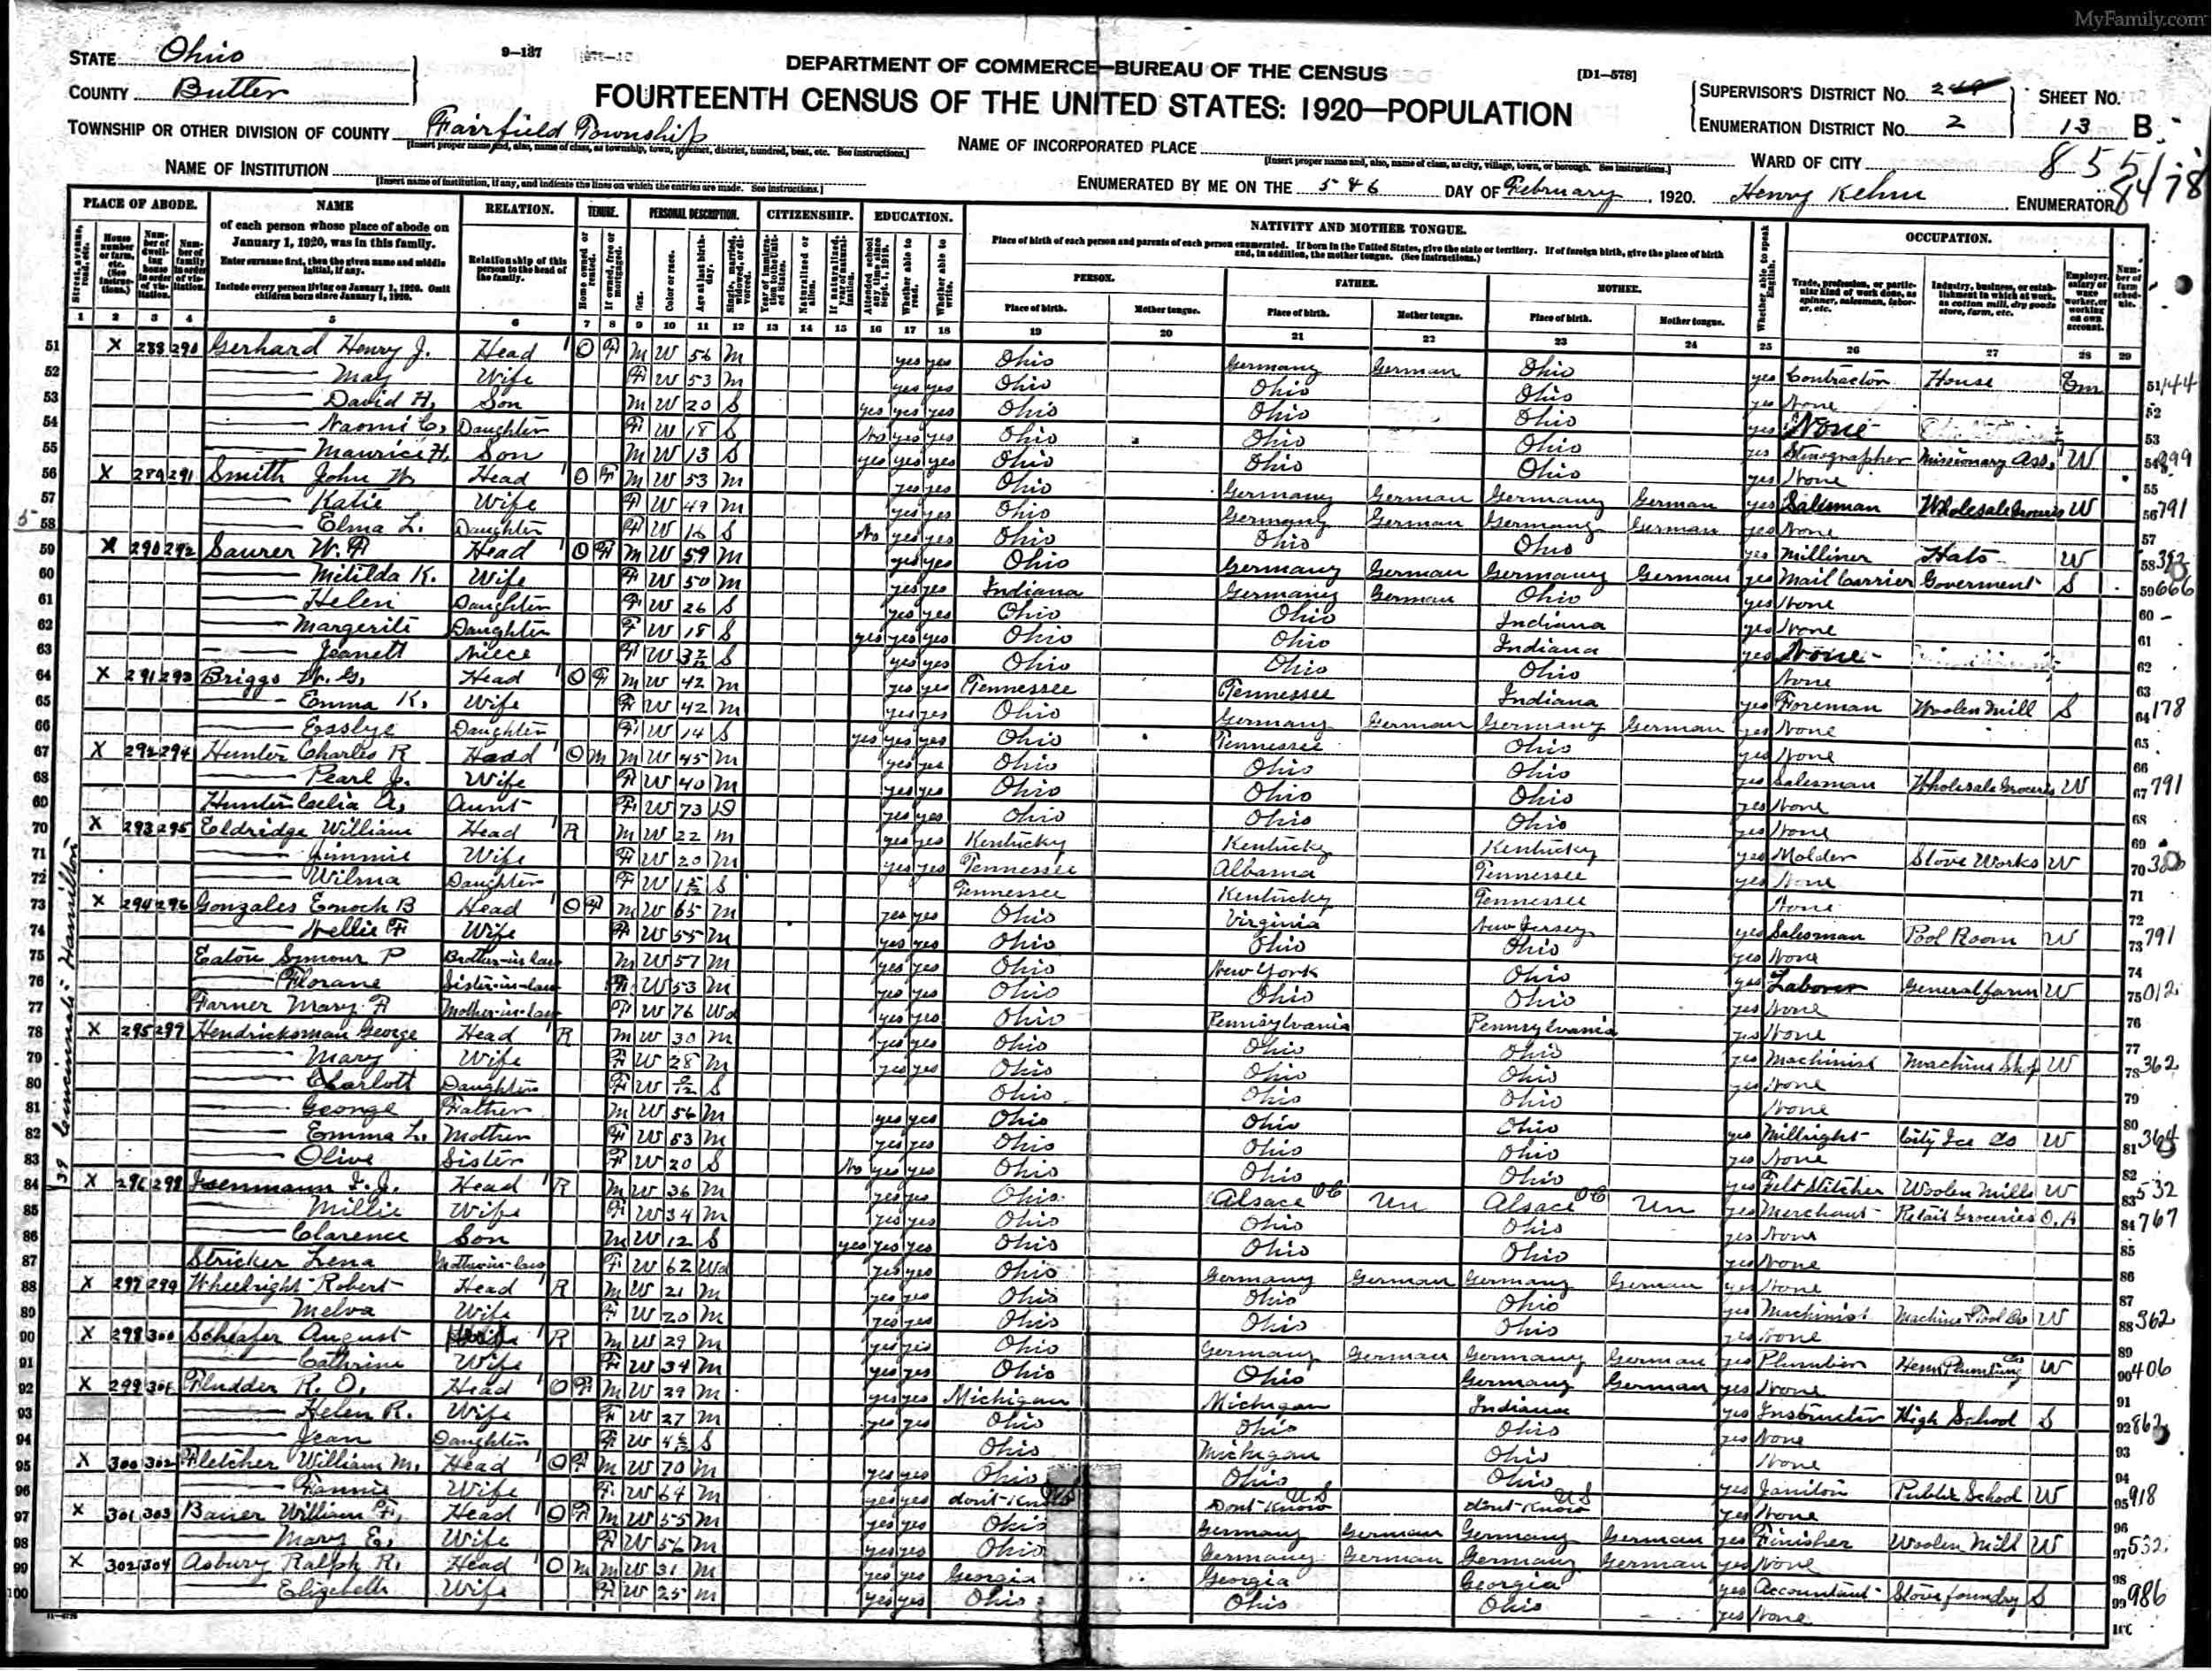 MyFamily.com
STATE Ohio 9-137 DEPARTMENT OF COMMERCE—BUREAU OF THE CENSUS [D1-578]
COUNTY Butler FOURTEENTH CENSUS OF THE UNITED STATES: 1920—POPULATION
SUPERVISOR'S DISTRICT No. SHEET No.
ENUMERATION DISTRICT No. 2 13 B
TOWNSHIP OR OTHER DIVISION OF COUNTY Fairfield Township NAME OF INCORPORATED PLACE WARD OF CITY
[Insert proper name and, also, name of class, as township, town, precinct, district, hundred, beat, etc. See instructions.] [Insert proper name and, also, name of class, as city, village, town, or borough. See instructions.]
NAME OF INSTITUTION ENUMERATED BY ME ON THE 5 & 6 DAY OF February, 1920. Henry Kehm ENUMERATOR
[Insert name of institution, if any, and indicate the lines on which the entries are made. See instructions.]
PLACE OF ABODE. NAME RELATION. TENURE. PERSONAL DESCRIPTION. CITIZENSHIP. EDUCATION. NATIVITY AND MOTHER TONGUE. OCCUPATION.
of each person whose place of abode on January 1, 1920, was in this family.
Enter surname first, then the given name and middle initial, if any.
Include every person living on January 1, 1920. Omit children born since January 1, 1920.
Relationship of this person to the head of the family.
Place of birth of each person and parents of each person enumerated. If born in the United States, give the state or territory. If of foreign birth, give the place of birth and, in addition, the mother tongue. (See Instructions.)
PERSON. FATHER. MOTHER.
Place of birth. Mother tongue. Place of birth. Mother tongue. Place of birth. Mother tongue.
1 2 3 4 5 6 7 8 9 10 11 12 13 14 15 16 17 18 19 20 21 22 23 24 25 26 27 28 29
51 X 288 290 Gerhard Henry J. Head O F M W 56 M yes yes Ohio Germany German Ohio yes Contractor House Em
52 May Wife F W 53 M yes yes Ohio Ohio Ohio yes None
53 David H. Son M W 20 S yes yes yes Ohio Ohio Ohio yes None
54 Naomi C. Daughter F W 18 S No yes yes Ohio Ohio Ohio yes Stenographer Missionary Ass. W
55 Maurice H. Son M W 13 S yes yes yes Ohio Ohio Ohio yes None
56 X 289 291 Smith John W Head O F M W 53 M yes yes Ohio Germany German Germany German yes Salesman Wholesale Groceries W 791
57 Katie Wife F W 49 M yes yes Ohio Germany German Germany German yes None
58 Elma L. Daughter F W 16 S No yes yes Ohio Ohio Ohio yes Milliner Hats W
59 X 290 292 Saurer W. F Head O F M W 59 M yes yes Ohio Germany German Germany German yes Mail Carrier Goverment S 666
60 Mitilda K. Wife F W 50 M yes yes Indiana Germany German Ohio yes None
61 Helen Daughter F W 26 S yes yes Ohio Ohio Indiana yes None
62 Margerite Daughter F W 18 S yes yes yes Ohio Ohio Indiana yes None
63 Jeanett Niece F W S Ohio Ohio Ohio None
64 X 291 293 Briggs W. G. Head O F M W 42 M yes yes Tennessee Tennessee Indiana yes Foreman Woolen Mill S 178
65 Emma K. Wife F W 42 M yes yes Ohio Germany German Germany German yes None
66 Esslye Daughter F W 14 S yes yes yes Ohio Tennessee Ohio yes None
67 X 292 294 Hunter Charles R Head O M M W 45 M yes yes Ohio Ohio Ohio yes Salesman Wholesale Groceries W 791
68 Pearl J. Wife F W 40 M yes yes Ohio Ohio Ohio yes None
69 Hunter Celia A. Aunt F W 73 D yes yes Ohio Ohio Ohio yes None
70 X 293 295 Eldridge William Head R M W 22 M yes yes Kentucky Kentucky Kentucky yes Molder Stove Works W
71 Jimmie Wife F W 20 M yes yes Tennessee Albama Tennessee yes None
72 Wilma Daughter F W S Tennessee Kentucky Tennessee None
73 X 294 296 Gonzales Enoch B Head O F M W 65 M yes yes Ohio Virginia New Jersey yes Salesman Pool Room W 791
74 Nellie F Wife F W 55 M yes yes Ohio Ohio Ohio yes None
75 Eaton Symour P Brother-in-law M W 57 M yes yes Ohio New York Ohio yes Laborer General farm W 012
76 Florane Sister-in-law F W 53 M yes yes Ohio Ohio Ohio yes None
77 Farner Mary F Mother-in-law F W 76 Wd yes yes Ohio Pennsylvania Pennsylvania yes None
78 X 295 297 Hendricksman George Head R M W 30 M yes yes Ohio Ohio Ohio yes Machinist Machine Shop W 362
79 Mary Wife F W 28 M yes yes Ohio Ohio Ohio yes None
80 Charlott Daughter F W S Ohio Ohio Ohio None
81 George Father M W 56 M yes yes Ohio Ohio Ohio yes Millright City Ice Co W
82 Emma L. Mother F W 53 M yes yes Ohio Ohio Ohio yes None
83 Olive Sister F W 20 S No yes yes Ohio Ohio Ohio yes Felt Stitcher Woolen Mills W 532
84 X 296 298 Isenmann I. J. Head R M W 36 M yes yes Ohio Alsace Un Alsace Un yes Merchant Retail Groceries O.A 767
85 Millie Wife F W 34 M yes yes Ohio Ohio Ohio yes None
86 Clarence Son M W 12 S yes yes yes Ohio Ohio Ohio yes None
87 Stricker Lena Mother-in-law F W 62 Wd yes yes Ohio Germany German Germany German yes None
88 X 297 299 Wheelright Robert Head R M W 21 M yes yes Ohio Ohio Ohio yes Machinist Machine Tool Co W 362
89 Melva Wife F W 20 M yes yes Ohio Ohio Ohio yes None
90 X 298 300 Scheafer August R M W 29 M yes yes Ohio Germany German Germany German yes Plumber Plumbing Co W 406
91 Cathrine Wife F W 34 M yes yes Ohio Ohio Germany German yes None
92 X 299 301 Fludder R. O. Head O F M W 29 M yes yes Michigan Michigan Indiana yes Instructor High School S
93 Helen R. Wife F W 27 M yes yes Ohio Ohio Ohio yes None
94 Jean Daughter F W S Ohio Michigan Ohio None
95 X 300 302 Fletcher William M. Head O F M W 70 M yes yes Ohio Ohio Ohio yes Janitor Public School W 918
96 Fannie Wife F W 64 M yes yes dont Know US Dont Know US dont Know US yes None
97 X 301 303 Bauer William F. Head O F M W 55 M yes yes Ohio Germany German Germany German yes Finisher Woolen Mill W 532
98 Mary E. Wife F W 56 M yes yes Ohio Germany German Germany German yes None
99 X 302 304 Asbury Ralph R. Head O M M W 31 M yes yes Georgia Georgia Georgia yes Accountant Stove foundry S 986
100 Elizabeth Wife F W 25 M yes yes Ohio Ohio Ohio yes None